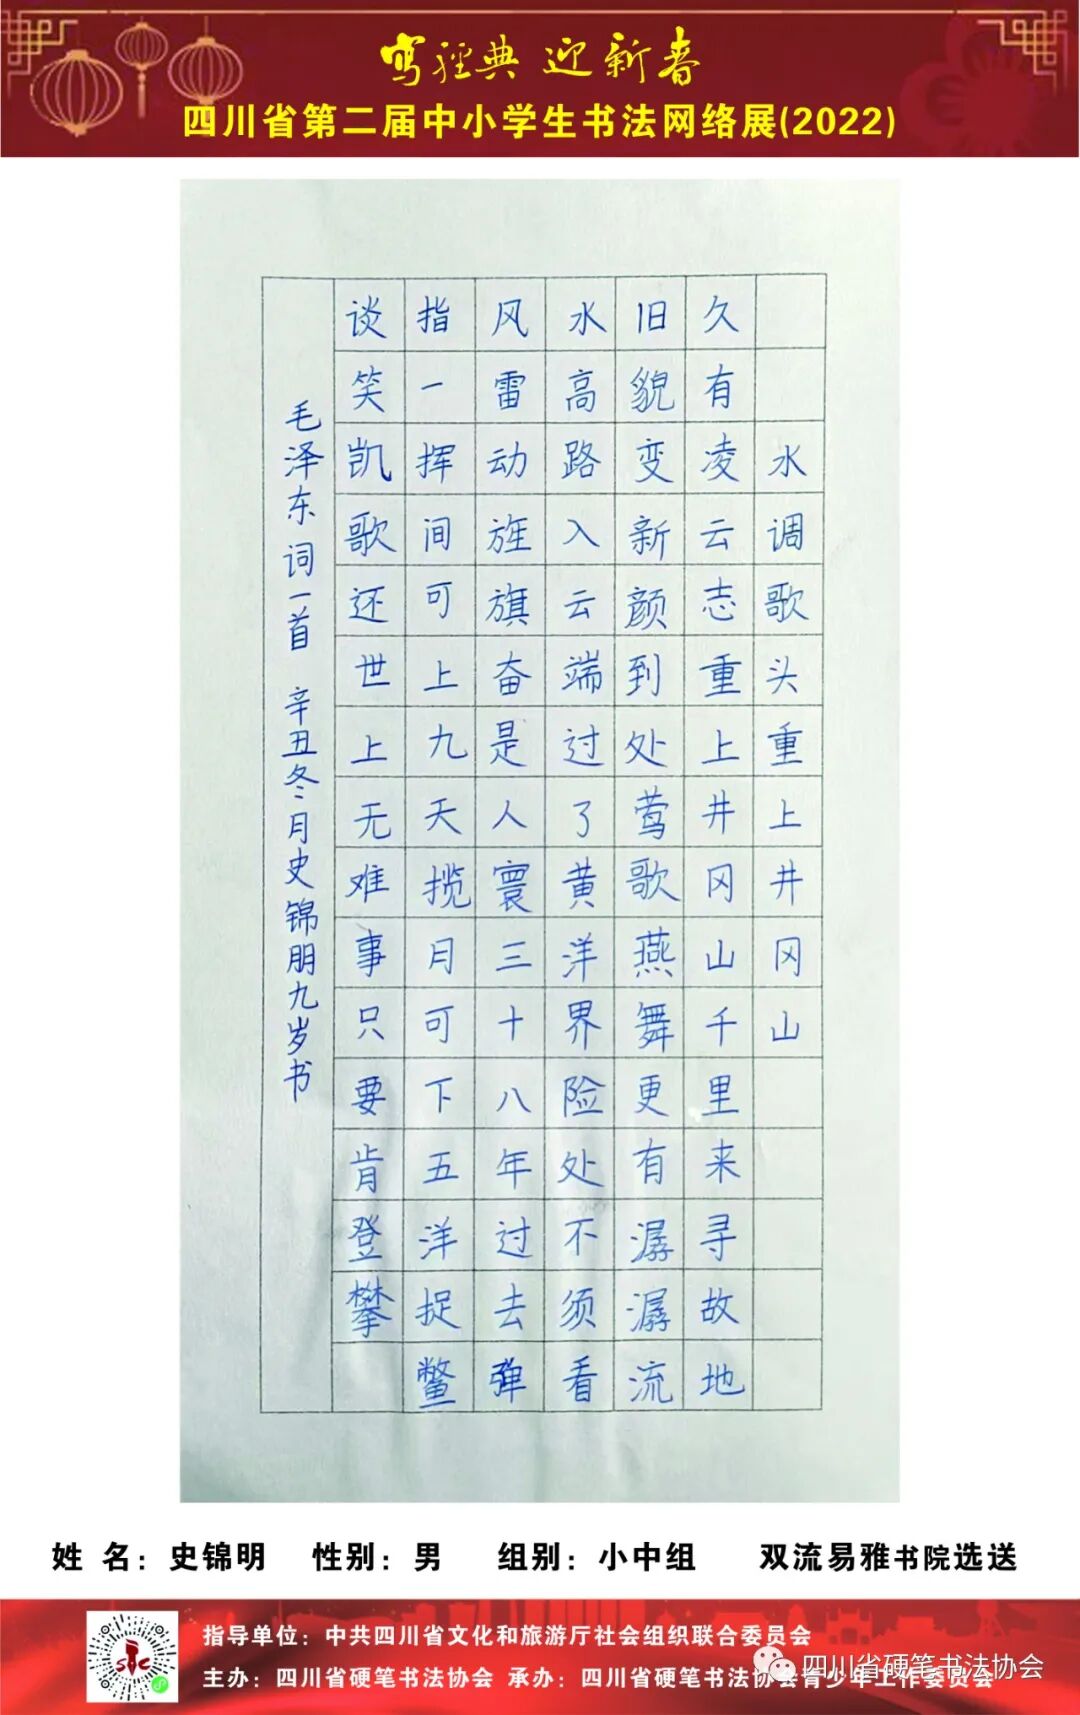 写经典 迎新春
四川省第二届中小学生书法网络展(2022)
水调歌头重上井冈山
久有凌云志重上井冈山千里来寻故地
旧貌变新颜到处莺歌燕舞更有潺潺流
水高路入云端过了黄洋界险处不须看
风雷动旌旗奋是人寰三十八年过去弹
指一挥间可上九天揽月可下五洋捉鳖
谈笑凯歌还世上无难事只要肯登攀
毛泽东词一首 辛丑冬月史锦朋九岁书
姓 名：史锦明 性别：男 组别：小中组 双流易雅书院选送
指导单位：中共四川省文化和旅游厅社会组织联合委员会
主办：四川省硬笔书法协会 承办：四川省硬笔书法协会青少年工作委员会
四川省硬笔书法协会